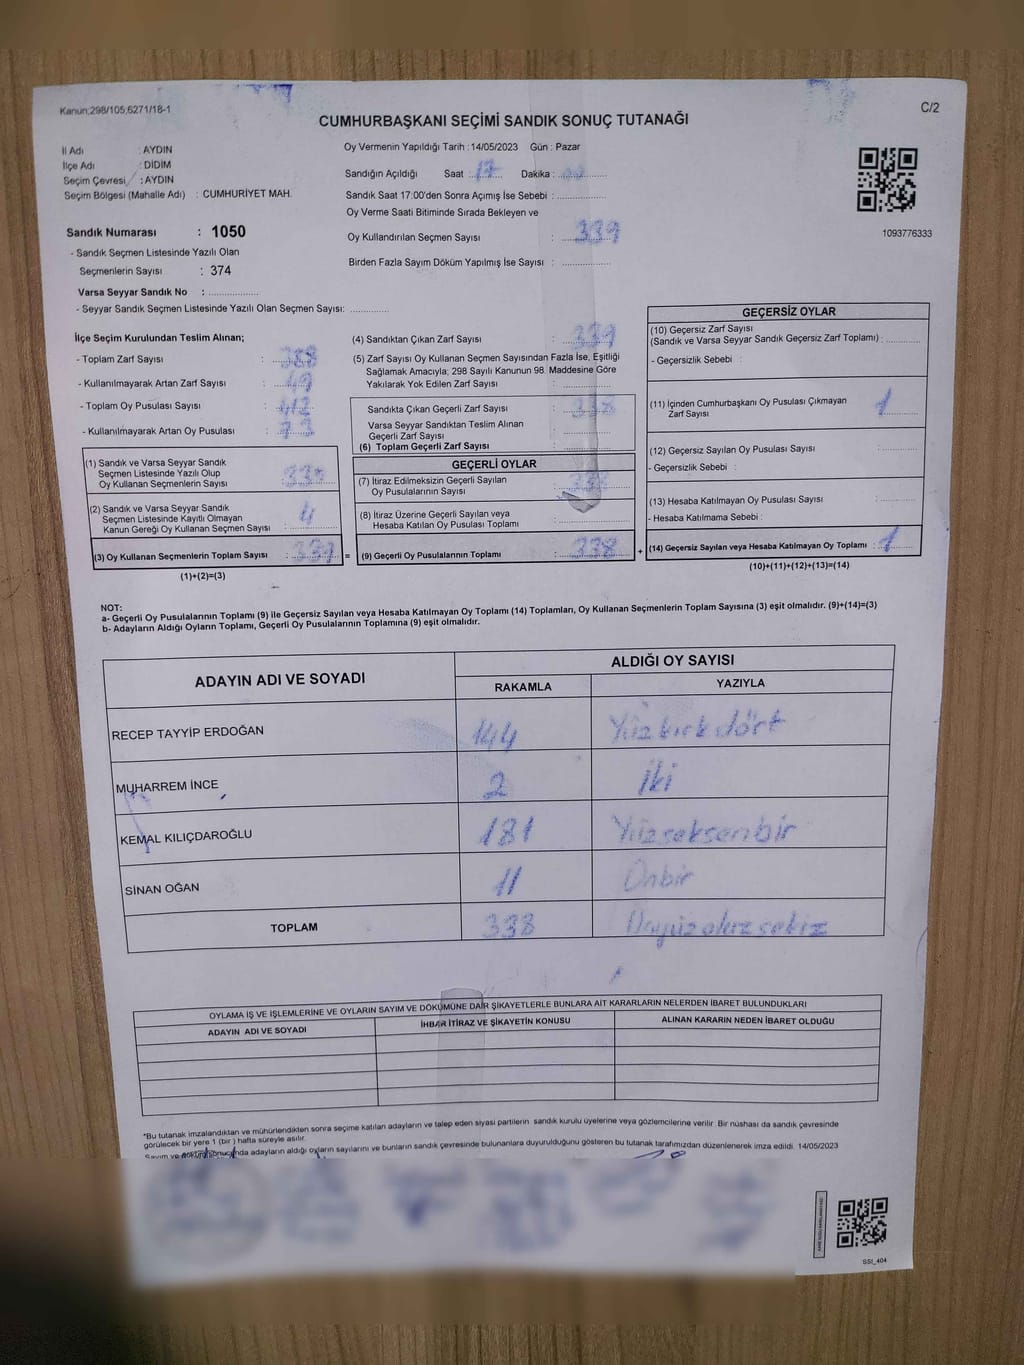 Kanun;298/105;6271/18-1
C/2
CUMHURBAŞKANI SEÇİMİ SANDIK SONUÇ TUTANAĞI
İl Adı : AYDIN
İlçe Adı : DİDİM
Seçim Çevresi : AYDIN
Seçim Bölgesi (Mahalle Adı) : CUMHURİYET MAH.
Oy Vermenin Yapıldığı Tarih : 14/05/2023 Gün : Pazar
Sandığın Açıldığı Saat : 17 Dakika : 00
Sandık Saat 17:00'den Sonra Açımış İse Sebebi :
Oy Verme Saati Bitiminde Sırada Bekleyen ve
Oy Kullandırılan Seçmen Sayısı : 339
Birden Fazla Sayım Döküm Yapılmış İse Sayısı :
1093776333
Sandık Numarası : 1050
- Sandık Seçmen Listesinde Yazılı Olan
Seçmenlerin Sayısı : 374
Varsa Seyyar Sandık No :
- Seyyar Sandık Seçmen Listesinde Yazılı Olan Seçmen Sayısı:
İlçe Seçim Kurulundan Teslim Alınan;
- Toplam Zarf Sayısı : 388
- Kullanılmayarak Artan Zarf Sayısı : 49
- Toplam Oy Pusulası Sayısı : 412
- Kullanılmayarak Artan Oy Pusulası : 73
(1) Sandık ve Varsa Seyyar Sandık
Seçmen Listesinde Yazılı Olup
Oy Kullanan Seçmenlerin Sayısı :
(2) Sandık ve Varsa Seyyar Sandık
Seçmen Listesinde Kayıtlı Olmayan
Kanun Gereği Oy Kullanan Seçmen Sayısı : 4
(3) Oy Kullanan Seçmenlerin Toplam Sayısı : 339 =
(1)+(2)=(3)
(4) Sandıktan Çıkan Zarf Sayısı : 339
(5) Zarf Sayısı Oy Kullanan Seçmen Sayısından Fazla İse, Eşitliği
Sağlamak Amacıyla; 298 Sayılı Kanunun 98. Maddesine Göre
Yakılarak Yok Edilen Zarf Sayısı :
Sandıkta Çıkan Geçerli Zarf Sayısı : 338
Varsa Seyyar Sandıktan Teslim Alınan
Geçerli Zarf Sayısı :
(6) Toplam Geçerli Zarf Sayısı :
GEÇERLİ OYLAR
(7) İtiraz Edilmeksizin Geçerli Sayılan
Oy Pusulalarının Sayısı : 338
(8) İtiraz Üzerine Geçerli Sayılan veya
Hesaba Katılan Oy Pusulası Toplamı :
(9) Geçerli Oy Pusulalarının Toplamı : 338 +
GEÇERSİZ OYLAR
(10) Geçersiz Zarf Sayısı
(Sandık ve Varsa Seyyar Sandık Geçersiz Zarf Toplamı) :
- Geçersizlik Sebebi :
(11) İçinden Cumhurbaşkanı Oy Pusulası Çıkmayan
Zarf Sayısı : 1
(12) Geçersiz Sayılan Oy Pusulası Sayısı :
- Geçersizlik Sebebi :
(13) Hesaba Katılmayan Oy Pusulası Sayısı :
- Hesaba Katılmama Sebebi :
(14) Geçersiz Sayılan veya Hesaba Katılmayan Oy Toplamı : 1
(10)+(11)+(12)+(13)=(14)
NOT:
a- Geçerli Oy Pusulalarının Toplamı (9) ile Geçersiz Sayılan veya Hesaba Katılmayan Oy Toplamı (14) Toplamları, Oy Kullanan Seçmenlerin Toplam Sayısına (3) eşit olmalıdır. (9)+(14)=(3)
b- Adayların Aldığı Oyların Toplamı, Geçerli Oy Pusulalarının Toplamına (9) eşit olmalıdır.
ADAYIN ADI VE SOYADI
ALDIĞI OY SAYISI
RAKAMLA YAZIYLA
RECEP TAYYİP ERDOĞAN 144 Yüzkırkdört
MUHARREM İNCE 2 İki
KEMAL KILIÇDAROĞLU 181 Yüzseksenbir
SİNAN OĞAN 11 Onbir
TOPLAM 338 Üçyüzotuzsekiz
OYLAMA İŞ VE İŞLEMLERİNE VE OYLARIN SAYIM VE DÖKÜMÜNE DAİR ŞİKAYETLERLE BUNLARA AİT KARARLARIN NELERDEN İBARET BULUNDUKLARI
ADAYIN ADI VE SOYADI İHBAR İTİRAZ VE ŞİKAYETİN KONUSU ALINAN KARARIN NEDEN İBARET OLDUĞU
*Bu tutanak imzalandıktan ve mühürlendikten sonra seçime katılan adayların ve talep eden siyasi partilerin sandık kurulu üyelerine veya gözlemcilerine verilir. Bir nüshası da sandık çevresinde
görülecek bir yere 1 (bir ) hafta süreyle asılır.
Sayım ve dökümü sonucunda adayların aldığı oyların sayılarını ve bunların sandık çevresinde bulunanlara duyurulduğunu gösteren bu tutanak tarafımızdan düzenlenerek imza edildi. 14/05/2023
SSI_404